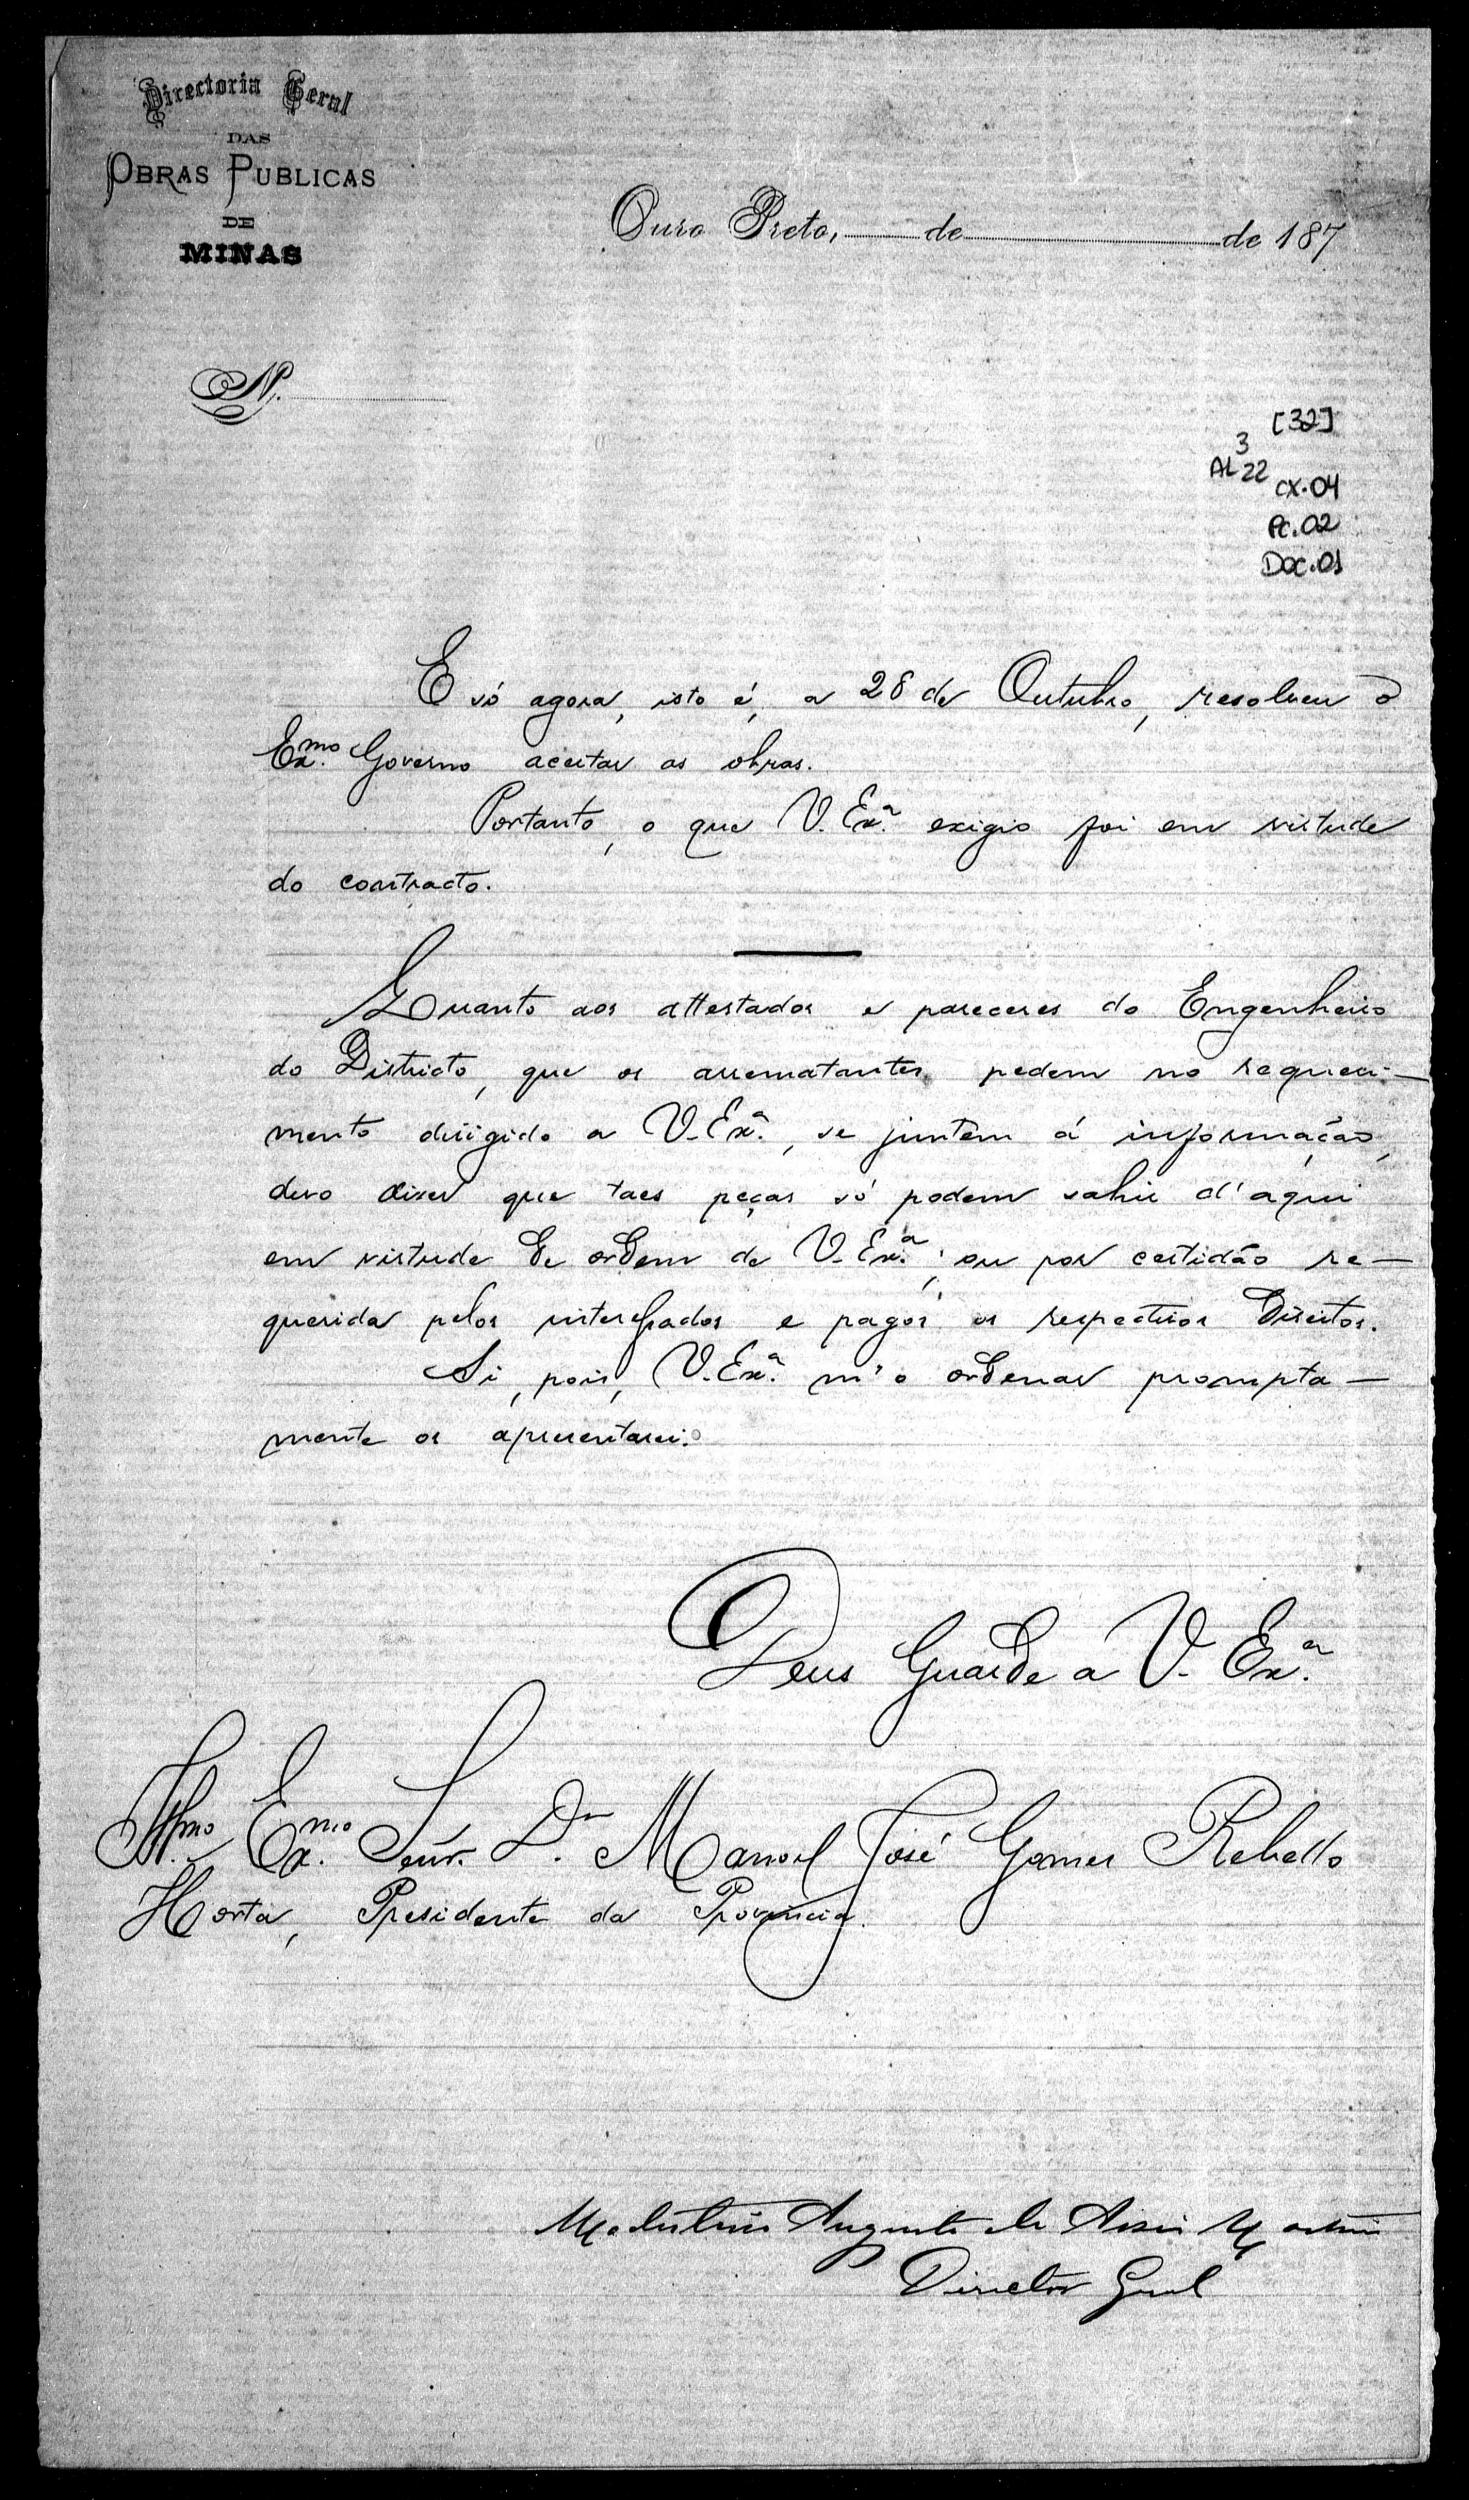 Directoria Geral
DAS
OBRAS PUBLICAS
DE
MINAS
Ouro Preto, de de 187
N.
[32]
3
AL 22
CX.04
Pc.02
Doc.01
E só agora, isto é, a 28 de Outubro, resolveu o
Exmo. Governo aceitar as obras.
Portanto, o que V. Exª. exigio foi em virtude
do contracto.
Quanto aos attestados e pareceres do Engenheiro
do Districto, que os arrematantes pedem no requeri-
mento dirigido a V. Exª., se juntem á informação,
devo dizer que taes peças só podem sahir d'aqui
em virtude de ordem de V. Exª., ou por certidão re-
querida pelos interessados e pagos os respectivos Direitos.
Si, pois, V. Exª. m'o ordenar prompta-
mente os apresentarei.
Deus Guarde a V. Exª.
Illmo. Exmo. Senr. Dr. Manoel José Gomes Rebello
Horta, Presidente da Provincia.
Augusto de Assis
Director Geral